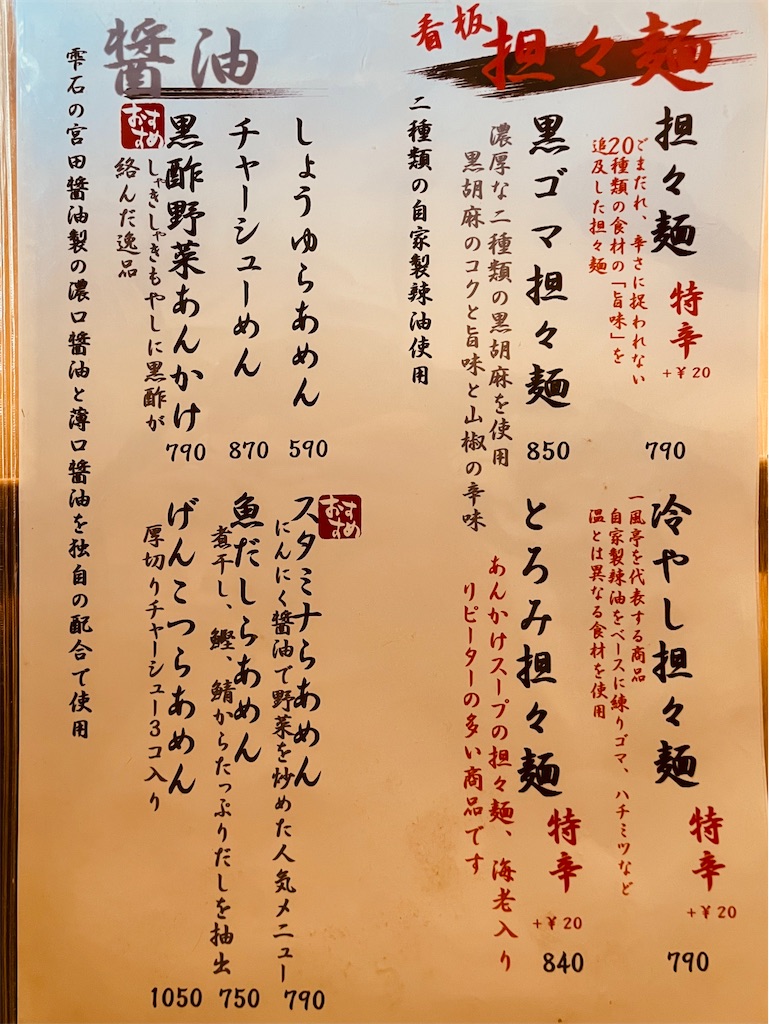 看板
担々麺
担々麺
特辛
+￥20
790
ごまだれ、辛さに捉われない
20種類の食材の「旨味」を
追及した担々麺
冷やし担々麺
特辛
+￥20
790
一風亭を代表する商品
自家製辣油をベースに練りゴマ、ハチミツなど
温とは異なる食材を使用
黒ゴマ担々麺
850
濃厚な二種類の黒胡麻を使用
黒胡麻のコクと旨味と山椒の辛味
とろみ担々麺
特辛
+￥20
840
あんかけスープの担々麺、海老入り
リピーターの多い商品です
二種類の自家製辣油使用
醤油
しょうゆらあめん
590
おすすめ
スタミナらあめん
790
にんにく醬油で野菜を炒めた人気メニュー
チャーシューめん
870
魚だしらあめん
750
煮干し、鰹、鯖からたっぷりだしを抽出
おすすめ
黒酢野菜あんかけ
790
しゃきしゃきもやしに黒酢が
絡んだ逸品
げんこつらあめん
1050
厚切りチャーシュー3コ入り
雫石の宮田醬油製の濃口醬油と薄口醬油を独自の配合で使用